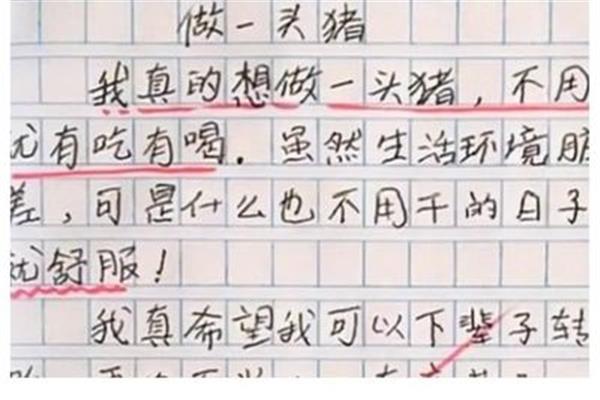 做一头猪
我真的想做一头猪，不用
就有吃有喝．虽然生活环境脏
差，可是什么也不用干的日子
就舒服！
我真希望我可以下辈子转